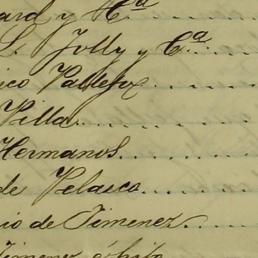 ard y Hª
L. Jolly y Cª
ico Pallejá
Villa
Hermanos
de Velasco
io de Jimenez
Jimenez é hijo